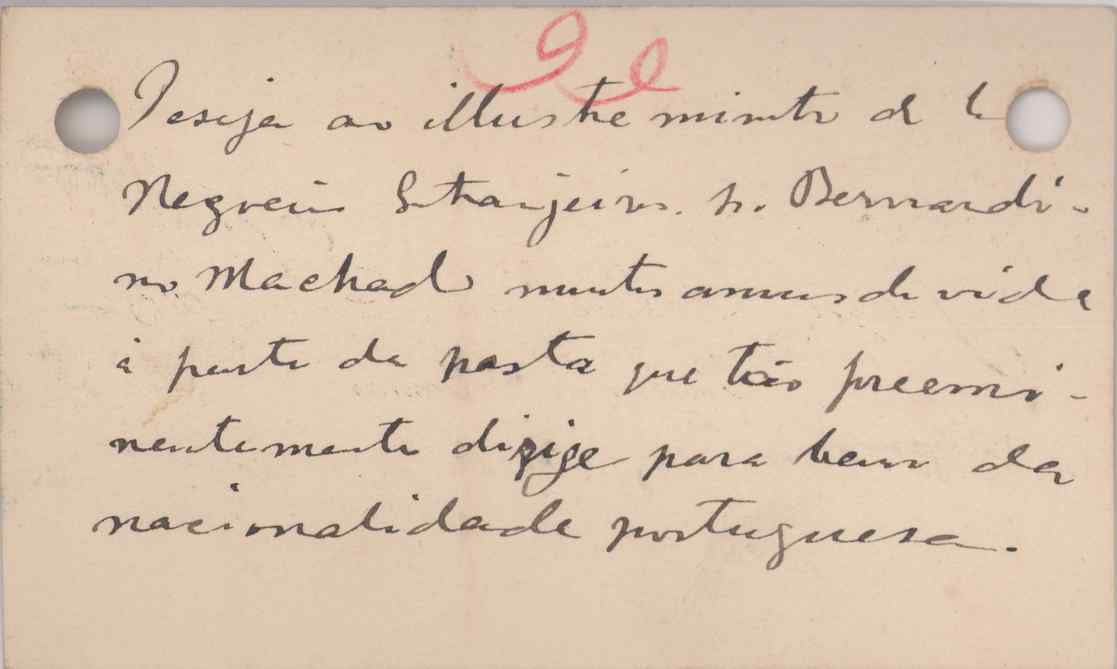 Deseja ao illustre ministro d
Negocios Estrangeiros. Sr. Bernardi-
no Machado muitos annos de vida
á parte da pasta que tão preemi-
nentemente dirige para bem da
nacionalidade portuguesa.